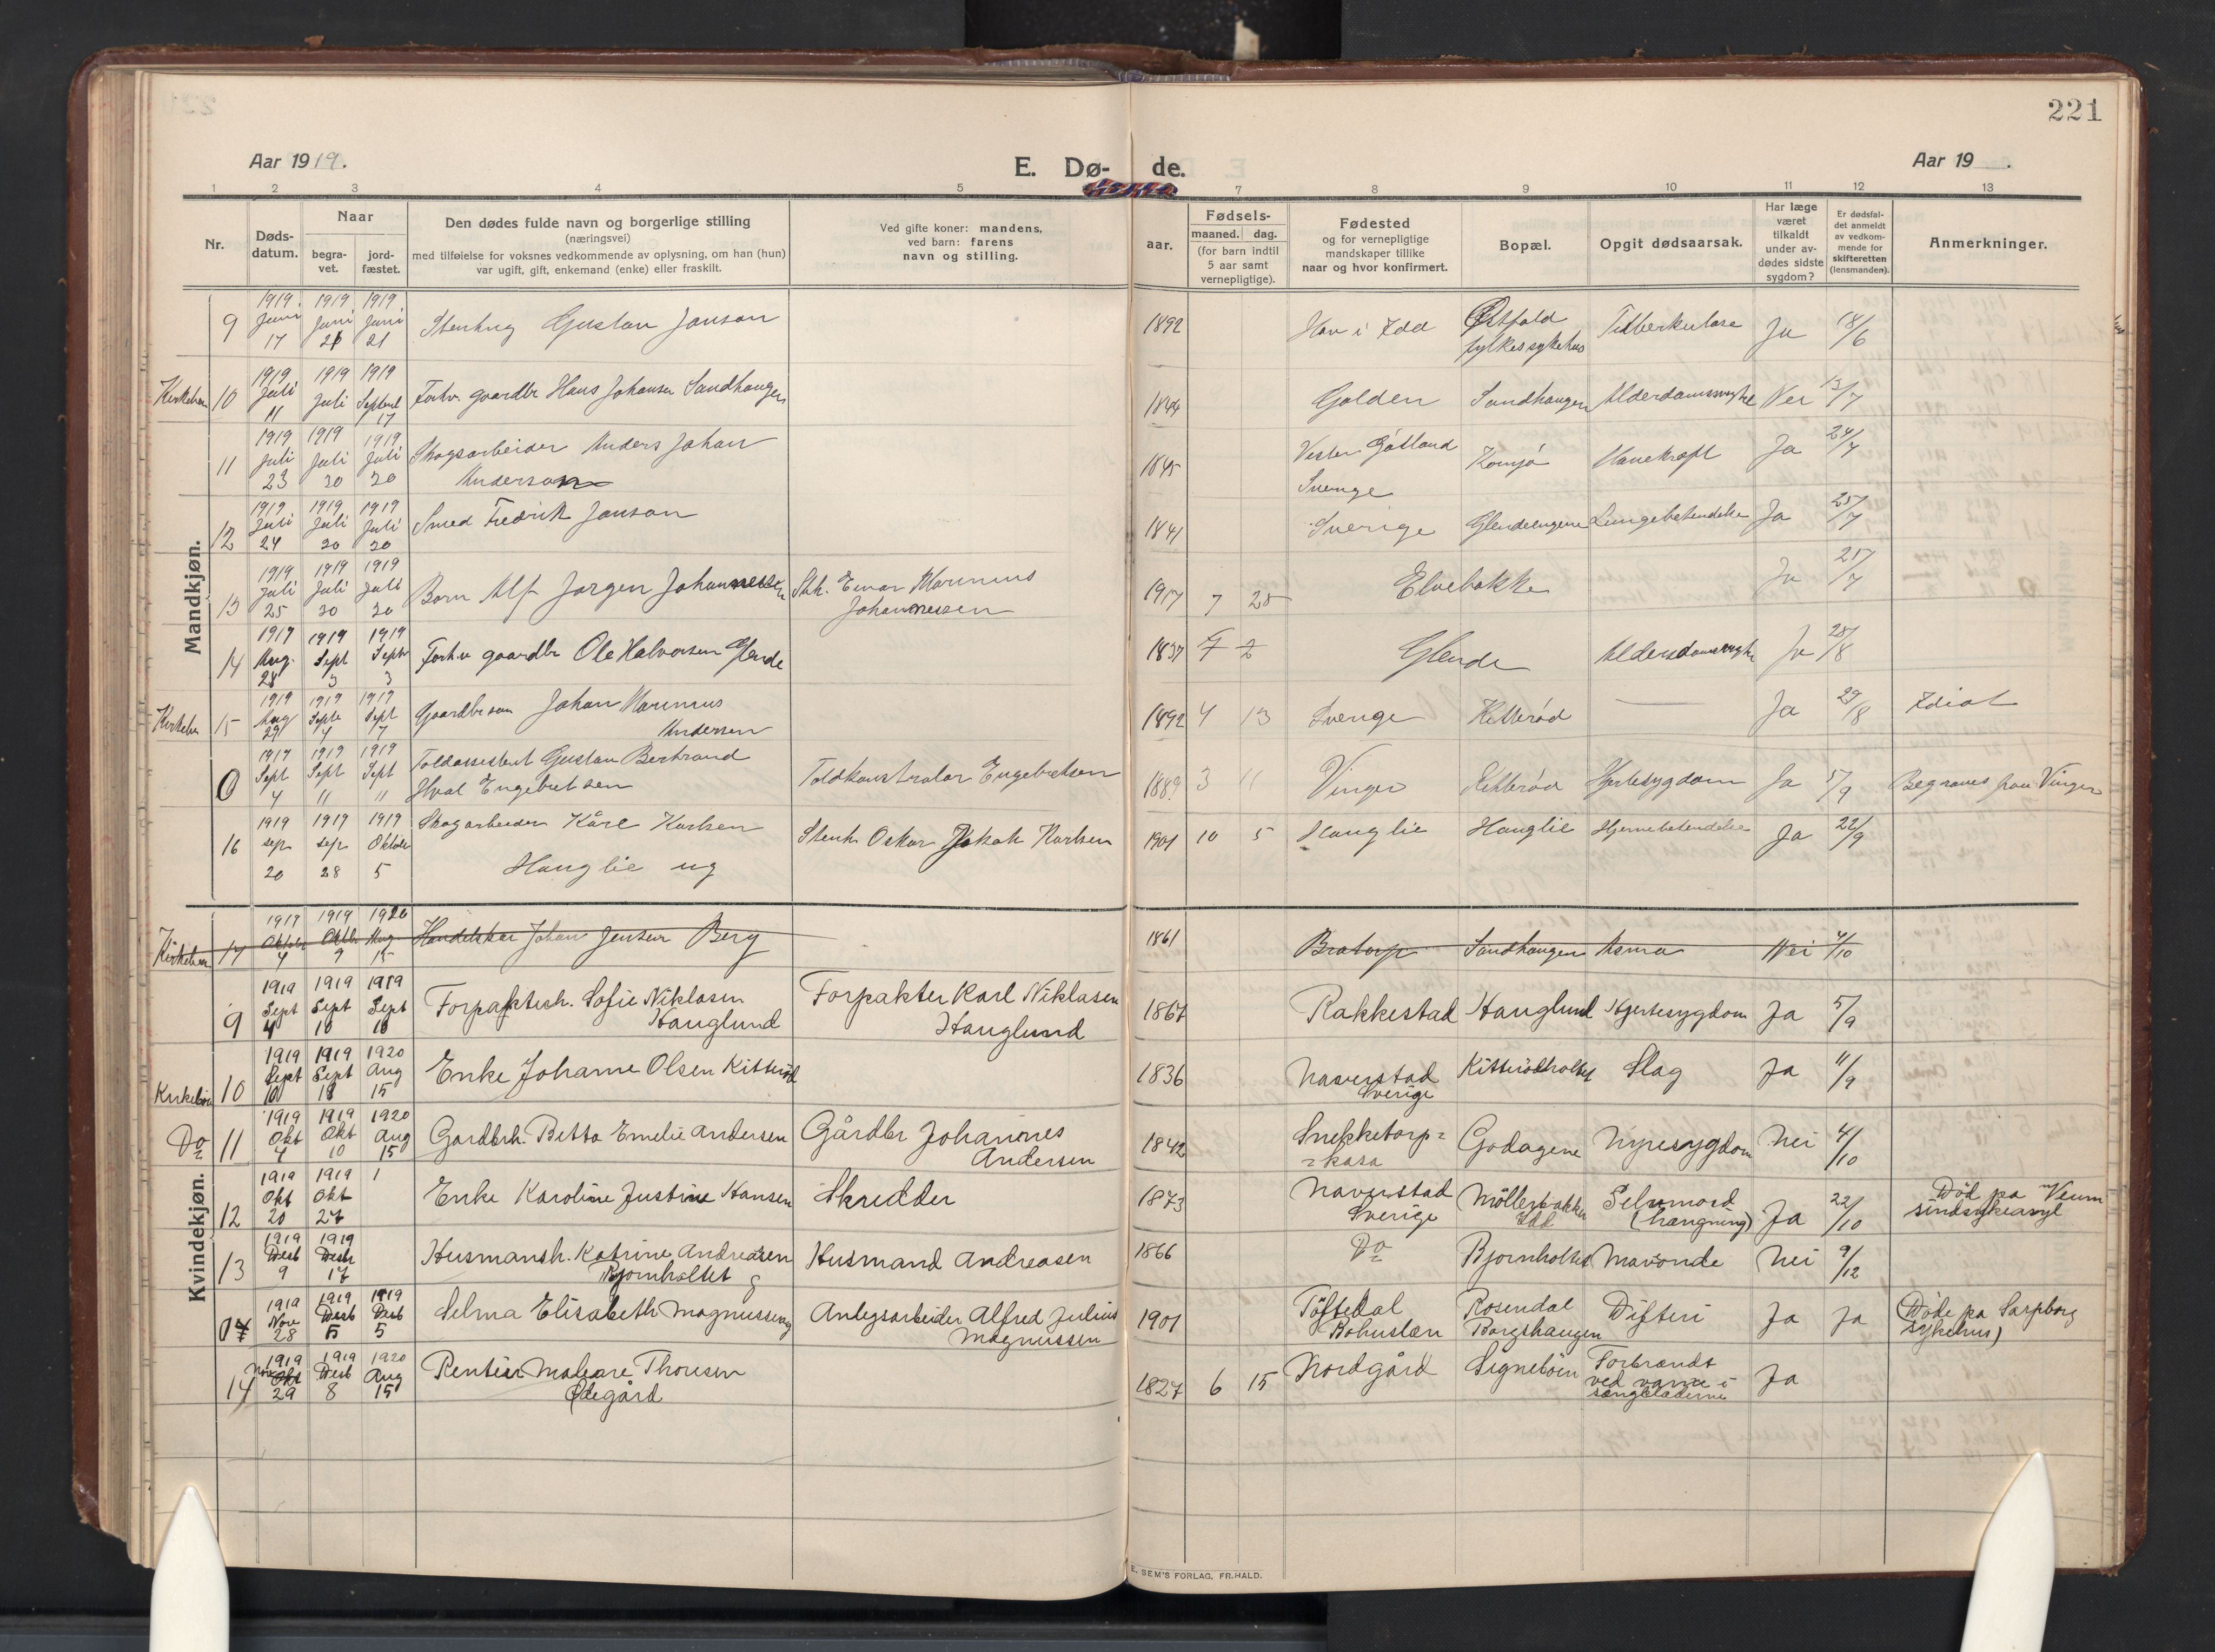 221
Aar 1919.
E. Dø- de.
Aar 19 .
1 2 3 4 5 7 8 9 10 11 12 13
Nr.
Døds-
datum.
Naar
begra-
vet.
jord-
fæstet.
Den dødes fulde navn og borgerlige stilling
(næringsvei)
med tilføielse for voksnes vedkommende av oplysning, om han (hun)
var ugift, gift, enkemand (enke) eller fraskilt.
Ved gifte koner: mandens,
ved barn: farens
navn og stilling.
aar.
Fødsels-
maaned. dag.
(for barn indtil
5 aar samt
vernepligtige).
Fødested
og for vernepligtige
mandskaper tillike
naar og hvor konfirmert.
Bopæl.
Opgit dødsaarsak.
Har læge
været
tilkaldt
under av-
dødes sidste
sygdom?
Er dødsfal-
det anmeldt
av vedkom-
mende for
skifteretten
(lensmanden).
Anmerkninger.
Mandkjøn.
9 1919 Juni 17 1919 Juni 21 1919 Juni 21 Stenhug Gustav Janson 1892 Hov i Idd Østfold fylkessykehus Tuberkulose Ja 18/6
10 1919 Juli 11 1919 Juli 1919 Septbr 17 Forhv. gaardbr Hans Johansen Sandhaugen 1844 Golden Sandhaugen Alderdomssvaghe Nei 13/7
11 1919 Juli 23 1919 Juli 30 1919 Juli 30 Skogsarbeider Anders Johan
Anderson 1845 Vester Götland
Sverige Kornsjø Ja 24/7
12 1919 Juli 24 1919 Juli 30 1919 Juli 30 Smed Fredrik Janson 1841 Sverige Glendeengene Lungebetendelse Ja 25/7
13 1919 Juli 25 1919 Juli 30 1919 Juli 30 Barn Alf Jørgen Johannessen Sth. Einar Marinius
Johannessen 1917 7 25 Elvebakke Ja
14 1919 Aug. 28 1919 Sept 3 1919 Septbr 3 Forhv gaardbr Ole Halvorsen Glende 1837 7 2 Glende Alderdomssvaghe Ja 28/8
15 1919 Aug 29 1919 Septb 4 1919 Sept 7 Gaardbrsøn Johan Marinius
Andersen 1892 4 13 Sverige Kitterød — Ja 29/8 Idiot
0 1919 Sept 4 1919 Sept 11 1919 Sept 11 Toldassistent Gustav Bertrand
Hval Engebretsen Toldkontrolør Engebretsen 1889 3 11 Vinger Kitterød Hjertesygdom Ja 5/9 Begraves paa Vinger
16 1919 sep 20 1919 sep 28 1919 Oktober 5 Skogarbeider Kåre Karlsen
Hauglie ug Stenh Oskar Jakob Karlsen 1901 10 5 Hauglie Hauglie Hjernebetendelse Ja 22/9
17 1919 Oktober 4 1919 Oktbr 9 1920 Aug 15 Handelskar Johan Jensen Berg 1861 Bratorp Sandhaugen Asma Nei 4/10
Kvindekjøn.
9 1919 Sept 4 1919 Sept 10 1919 Sept 10 Forpaktersh. Sofie Niklasen
Hauglund Forpakter Karl Niklasen
Hauglund 1867 Rakkestad Hauglund Hjertesygdom Ja 5/9
Kirkebøen 10 1919 Sept 10 1919 Sept 18 1920 Aug 15 Enke Johanne Olsen Kitterød 1836 Naverstad
Sverige Kitterødholtet Slag Ja 11/9
Do 11 1919 Okt 4 1919 Okt 10 1920 Aug 15 Gardbrh. Betta Emelie Andersen Gårdbr Johannes
Andersen 1842 Snekketorp=
=kasa Godagene Nyresygdom Nei 4/10
12 1919 Okt 20 1919 Okt 27 1 Enke Karoline Justine Hansen Skredder 1873 Naverstad
Sverige Möllerbakken
Idd Selvmord
(hængning) Ja 22/10 Död pa Veum
sindsykeasyl
13 1919 Desb 9 1919 Desb 17 Husmansh. Katrine Andreasen
Bjornholtet g Husmand Andreasen 1866 Do Bjornholtet Mavonde Nei 9/12
0 1919 Nov 28 1919 Desb 5 1919 Desb 5 Selma Elisabeth Magnussen Anlegsarbeider Alfred Julius
Magnussen 1901 Töftedal
Bohuslæn Rosendal
Borgshaugen Difteri Ja Ja (Döde pa Sarpborg
sykehus)
14 1919 Nov 29 1919 Desb 8 1920 Aug 15 Rentier Maleare Thoresen
Ødegård 1827 6 15 Nordgård Signebøen Forbrændt
ved varme i
sængklæderne Ja
E. SEM'S FORLAG, FR.HALD.